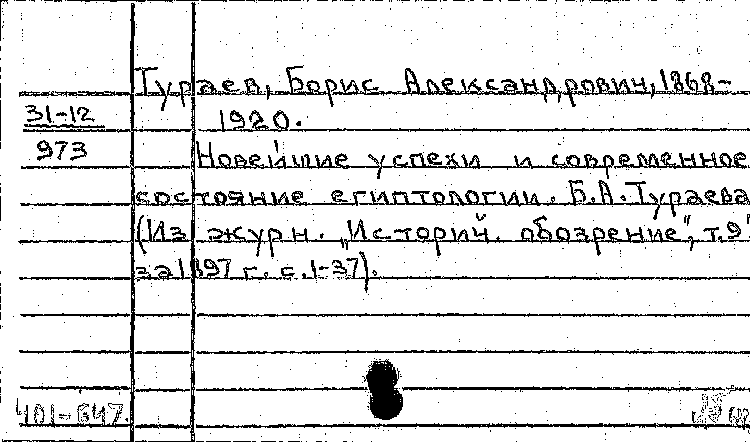 Тураев, Борис Александрович, 1868-
31-12
1920.
973
Новейшие успехи и современное
состояние египтологии. Б.А. Тураева
(Из журн. „Историч. обозрение", т.9"
за 1897 г. с. 1-37).
401-647.